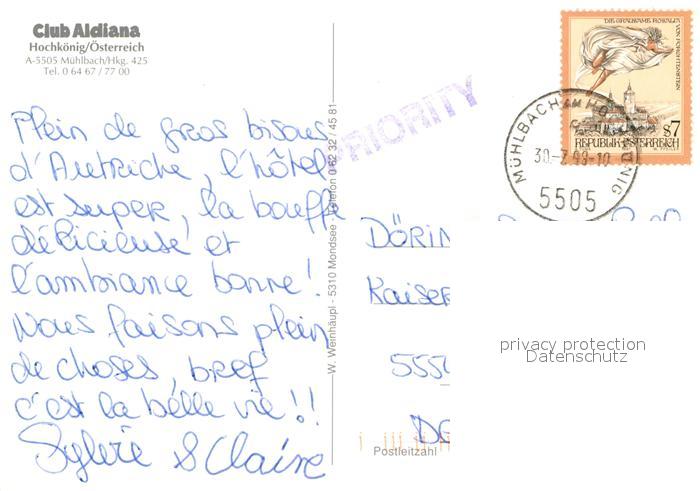 Club Aldiana
Hochkönig/Österreich
A-5505 Mühlbach/Hkg. 425
Tel. 0 64 67 / 77 00
Plein de gros bisous
d'Autriche, l'hôtel
est super, la bouffe
délicieuse et
l'ambiance bonne!
Nous faisons plein
de choses, bref
c'est la belle vie!!
Sylvie & Claire
W. Weinhäupl - 5310 Mondsee - Telefon 0 62 32 / 45 81
PRIORITY
DIE GRAUSAME ROSALIA
VON FORCHTENSTEIN
S 7
REPUBLIK ÖSTERREICH
MÜHLBACH AM HOCHKÖNIG
30.-7.98-10
5505
DÖRIN
Kaiser
555
DE
Postleitzahl
privacy protection
Datenschutz